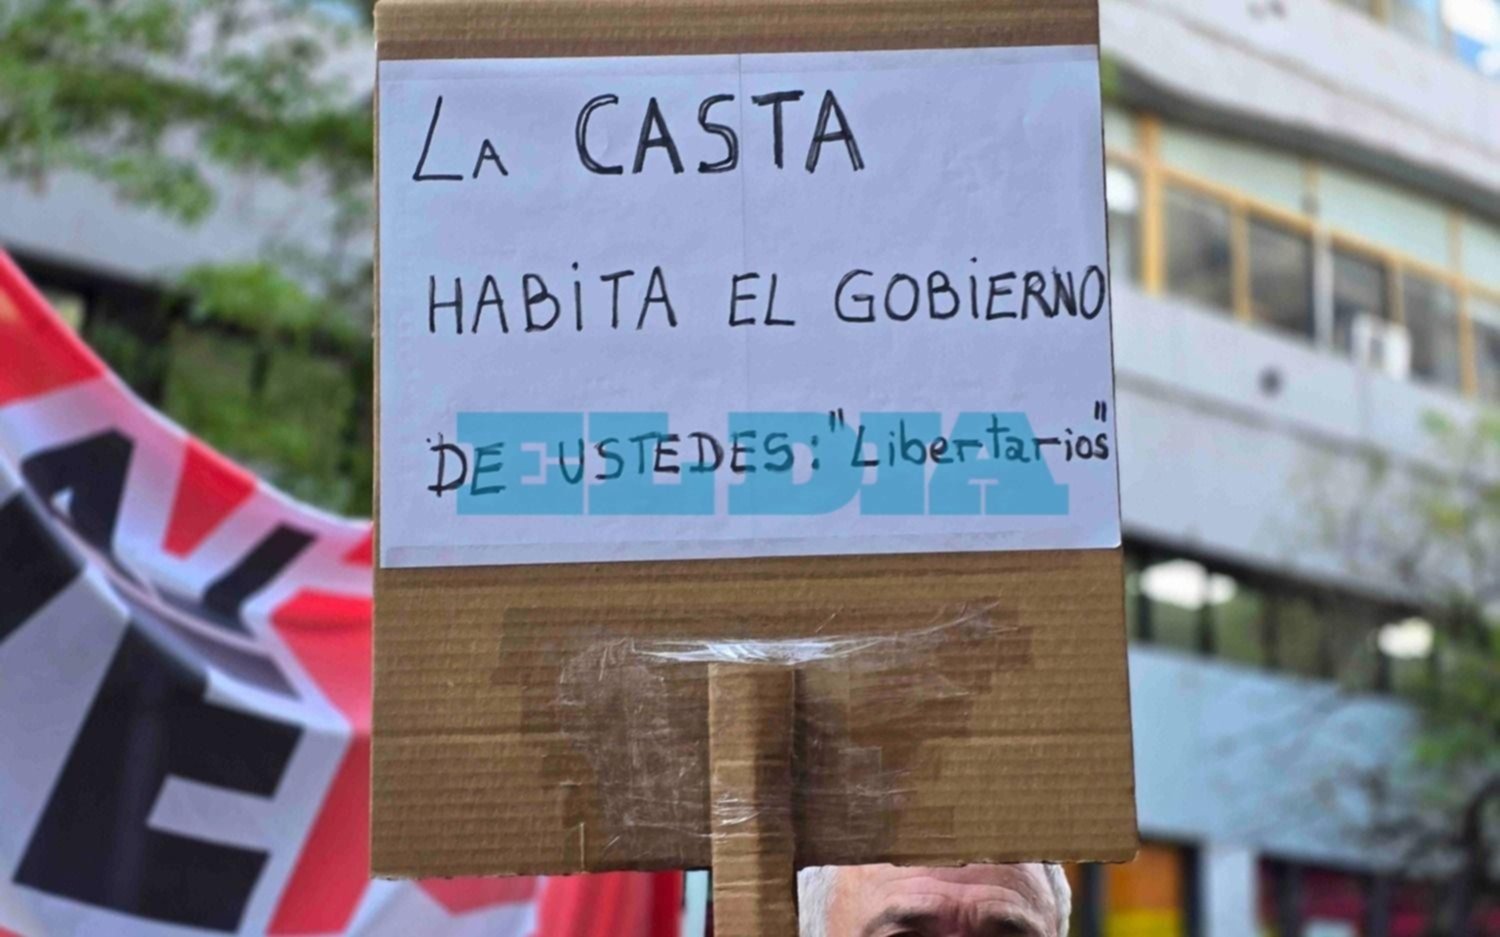 LA CASTA
HABiTA EL GOBiERNO
DE USTEDES: "Libertarios"
EL DIA